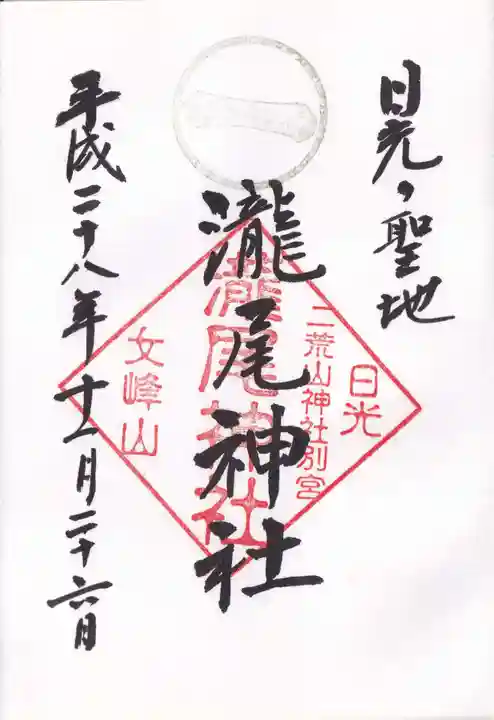 日光の聖地
日光
二荒山神社別宮
瀧尾神社
瀧尾神社
女峰山
平成二十八年十一月二十六日